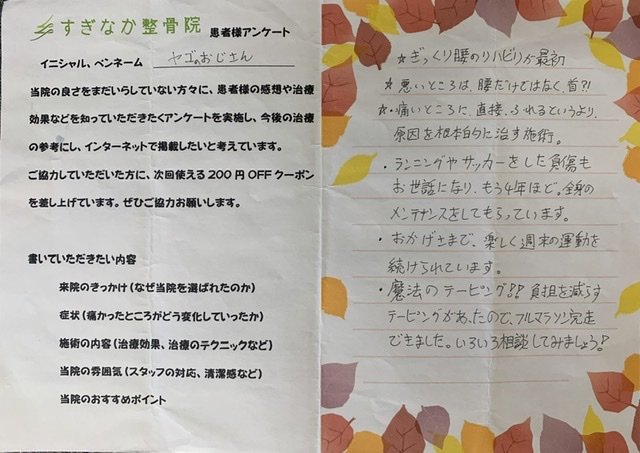 すぎなか整骨院 患者様アンケート
イニシャル、ペンネーム ヤゴのおじさん
当院の良さをまだいらしていない方々に、患者様の感想や治療
効果などを知っていただきたくアンケートを実施し、今後の治療
の参考にし、インターネットで掲載したいと考えています。
ご協力していただいた方に、次回使える200円OFFクーポン
を差し上げています。ぜひご協力お願いします。
書いていただきたい内容
来院のきっかけ(なぜ当院を選ばれたのか)
症状(痛かったところがどう変化していったか)
施術の内容(治療効果、治療のテクニックなど)
当院の雰囲気(スタッフの対応、清潔感など)
当院のおすすめポイント
☆ぎっくり腰のリハビリが最初
☆悪いところは、腰だけではなく、首?!
☆・痛いところに、直接、ふれるというより、
原因を根本的に治す施術。
・ランニングやサッカーをした負傷も
お世話になり、もう4年ほど。全身の
メンテナンスをしてもらっています。
・おかげさまで、楽しく週末の運動を
続けられています。
・魔法のテーピング!! 負担を減らす
テーピングがあったので、フルマラソン完走
できました。いろいろ相談してみましょう!